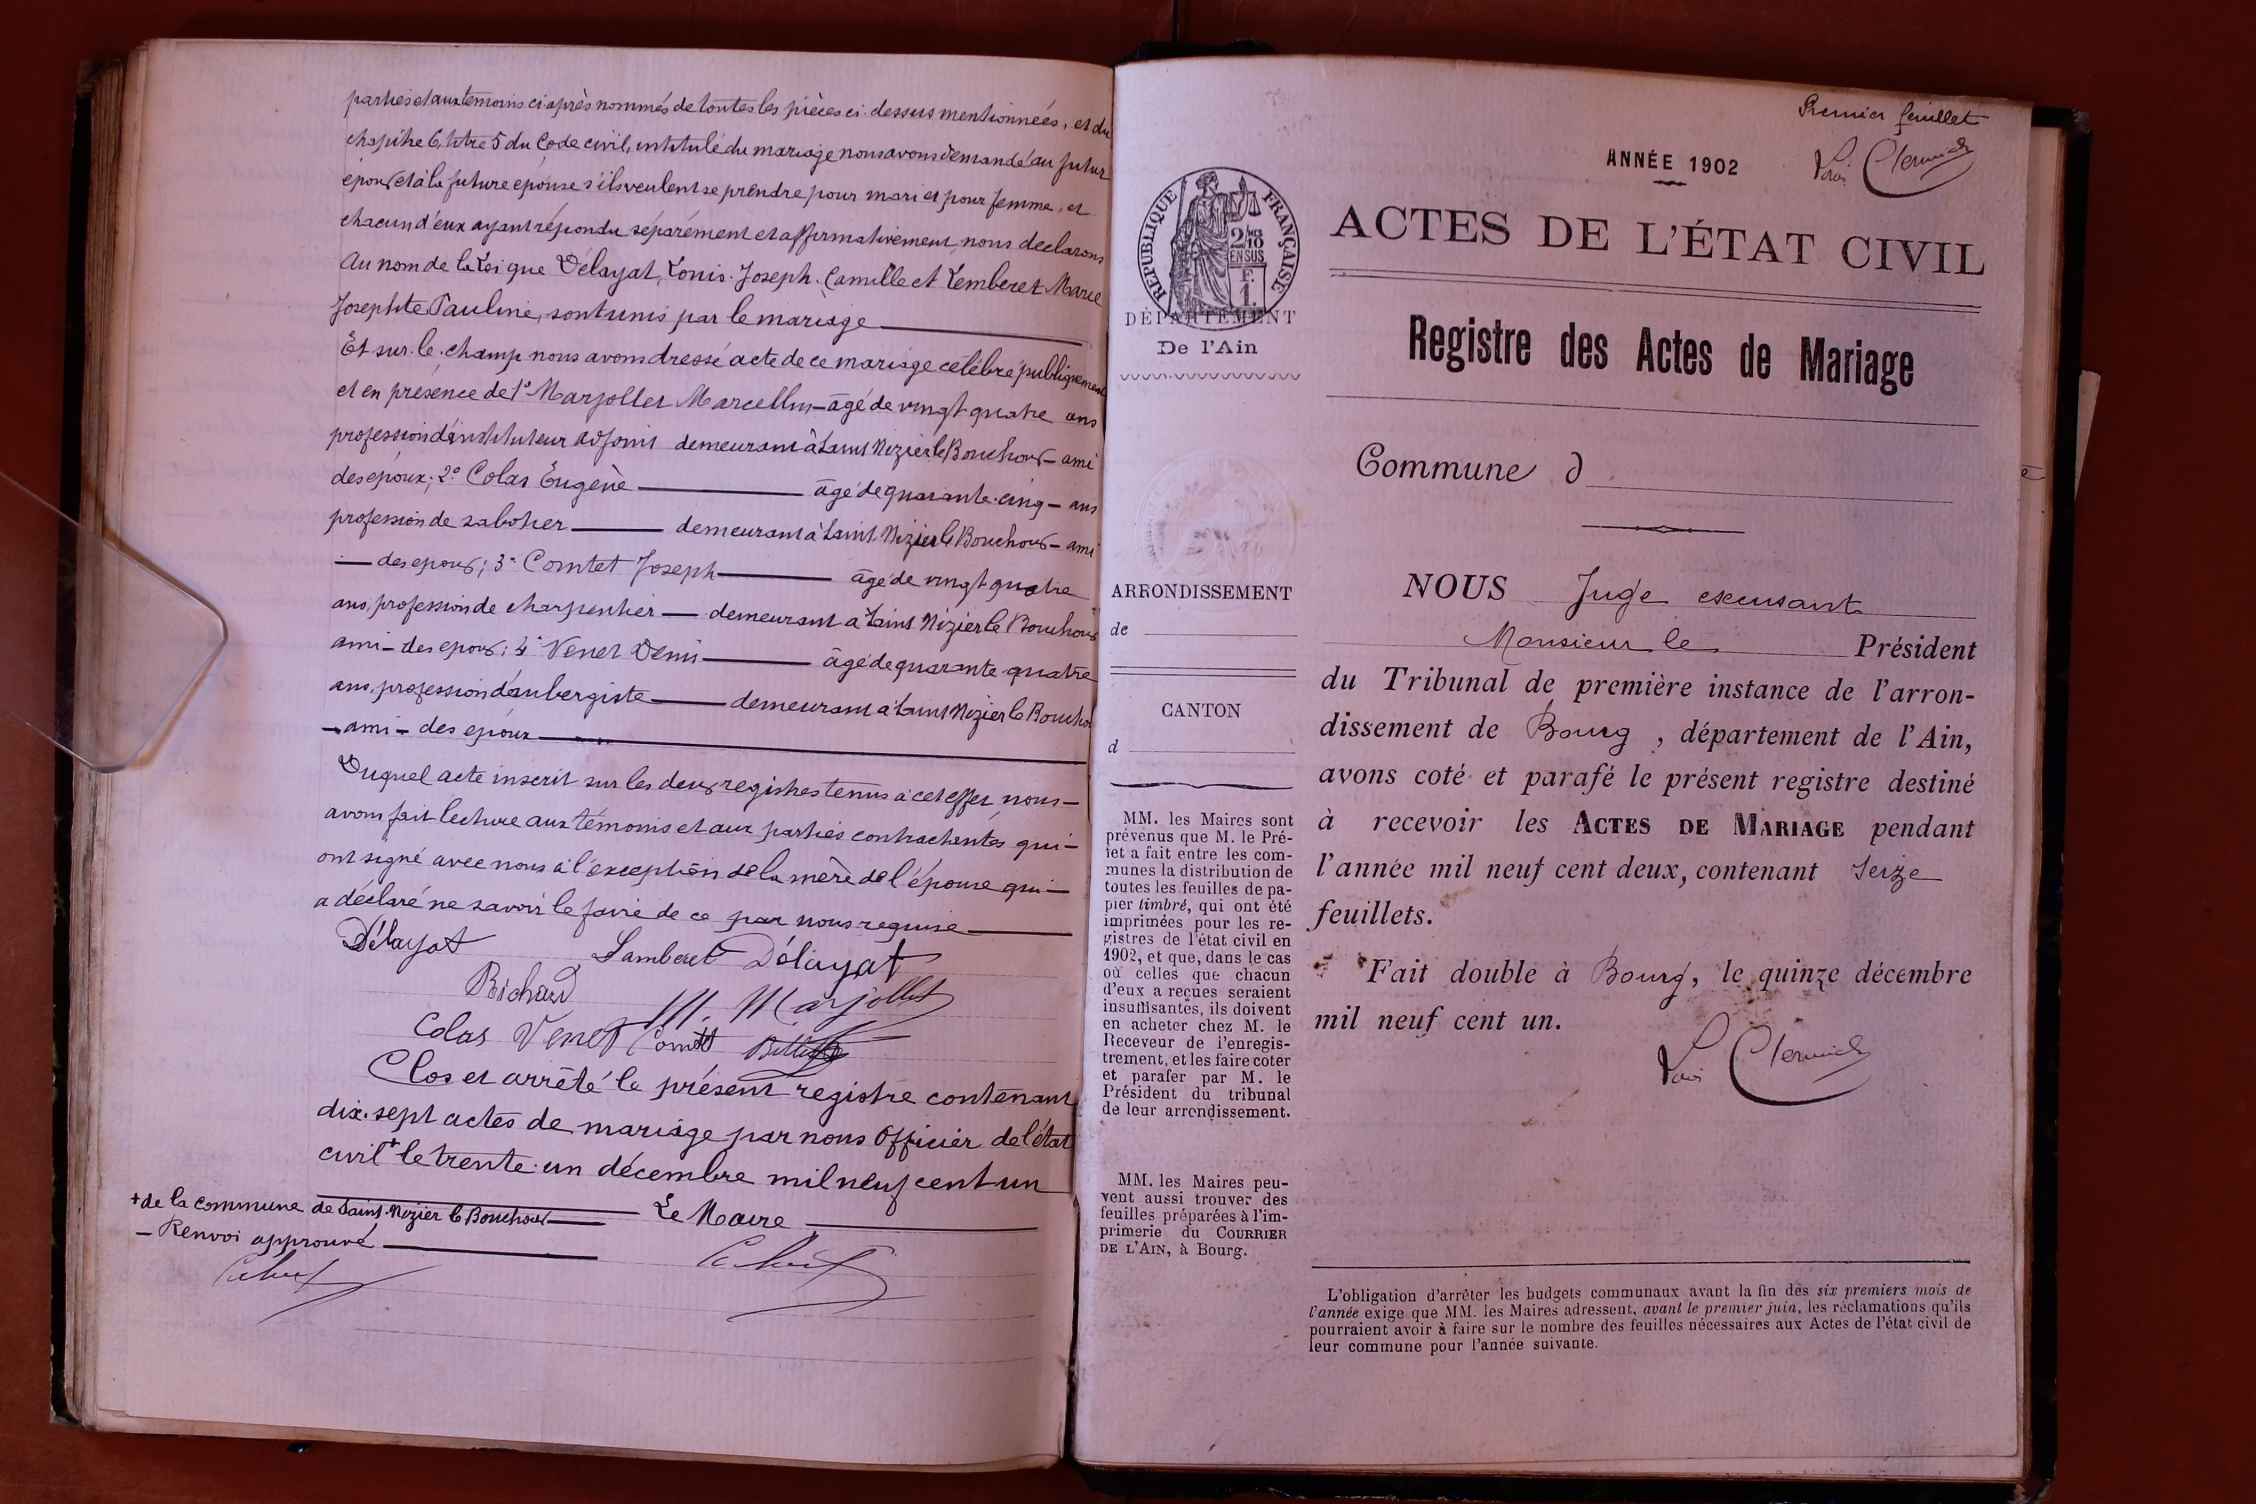 parties et aux témoins ci après nommés de toutes les pièces ci-dessus mentionnées, et du
chapitre 6, titre 5 du Code civil, intitulé du mariage nous avons demandé au futur
époux et à la future épouse s'ils veulent se prendre pour mari et pour femme, et
chacun d'eux ayant répondu séparément et affirmativement, nous déclarons
Au nom de la Loi que Délayat, Louis-Joseph-Camille et Lemberet Marie
Josephte Pauline, sont unis par le mariage
Et sur-le-champ nous avons dressé acte de ce mariage célébré publiquement
et en présence de 1° Marjollet Marcellin âgé de vingt quatre ans
profession d'instituteur adjoint demeurant à Saint Nizier le Bouchoux - ami
des époux; 2° Colas Eugène âgé de quarante-cinq - ans
profession de sabotier demeurant à Saint Nizier le Bouchoux - ami
des époux; 3° Comtet Joseph âgé de vingt quatre
ans, profession de charpentier demeurant à Saint Nizier le Bouchoux
ami - des époux; 4° Venet Denis âgé de quarante quatre
ans, profession d'aubergiste demeurant à Saint Nizier le Bouchoux
- ami - des époux
Duquel acte inscrit sur les deux registres tenus à cet effet, nous -
avons fait lecture aux témoins et aux parties contractantes qui -
ont signé avec nous à l'exception de la mère de l'épouse qui -
a déclaré ne savoir le faire de ce par nous requise
Délayat Lamberet Délayat
Richard M. Marjollet
Colas Venet Comtet
Clos et arrêté le présent registre contenant
dix-sept actes de mariage par nous Officier de l'état
civil + le trente-un décembre mil neuf cent un
+ de la commune de Saint-Nizier le Bouchoux
Le Maire
- Renvoi approuvé
Premier feuillet
ANNÉE 1902
ACTES DE L'ÉTAT CIVIL
RÉPUBLIQUE FRANÇAISE
2/10 EN SUS
F. 1.
DÉPARTEMENT
De l'Ain
Registre des Actes de Mariage
Commune d
ARRONDISSEMENT
de
CANTON
d
MM. les Maires sont
prévenus que M. le Pré-
fet a fait entre les com-
munes la distribution de
toutes les feuilles de pa-
pier timbré, qui ont été
imprimées pour les re-
gistres de l'état civil en
1902, et que, dans le cas
où celles que chacun
d'eux a reçues seraient
insuffisantes, ils doivent
en acheter chez M. le
Receveur de l'enregis-
trement, et les faire coter
et parafer par M. le
Président du tribunal
de leur arrondissement.
MM. les Maires peu-
vent aussi trouver des
feuilles préparées à l'im-
primerie du COURRIER
DE L'AIN, à Bourg.
NOUS Juge excusant
Monsieur le Président
du Tribunal de première instance de l'arron-
dissement de Bourg, département de l'Ain,
avons coté et parafé le présent registre destiné
à recevoir les ACTES DE MARIAGE pendant
l'année mil neuf cent deux, contenant Seize
feuillets.
Fait double à Bourg, le quinze décembre
mil neuf cent un.
L'obligation d'arrêter les budgets communaux avant la fin des six premiers mois de
l'année exige que MM. les Maires adressent, avant le premier juin, les réclamations qu'ils
pourraient avoir à faire sur le nombre des feuilles nécessaires aux Actes de l'état civil de
leur commune pour l'année suivante.